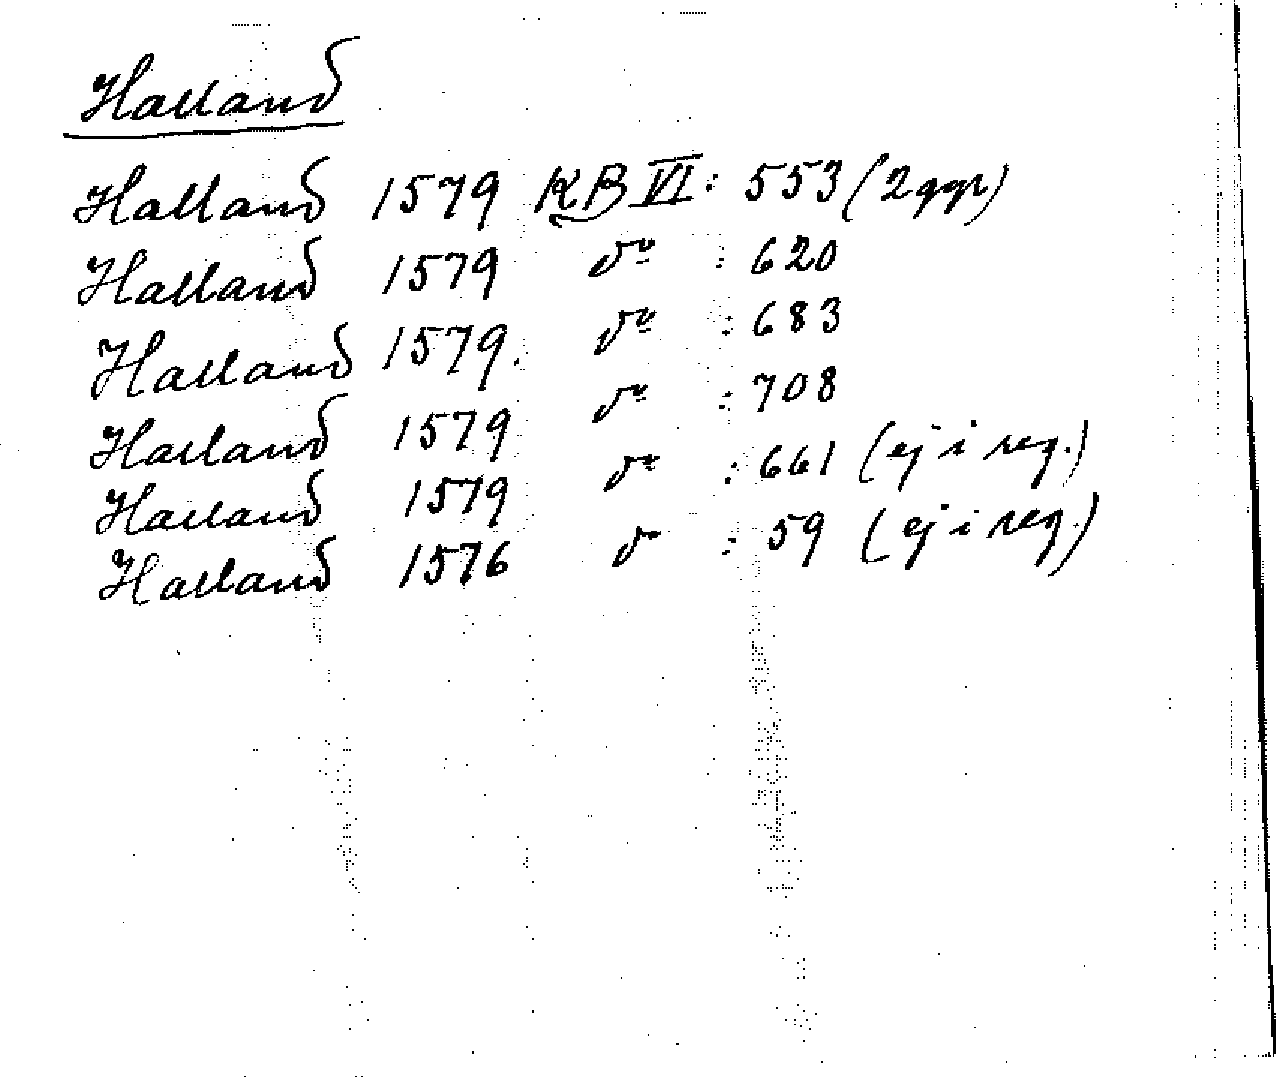 Halland
Halland 1579 KB VI: 553 (2 ggr)
Halland 1579 do : 620
Halland 1579. do : 683
Halland 1579 do : 708
Halland 1579 do : 661 (ej i reg.)
Halland 1576 do : 59 (ej i reg.)